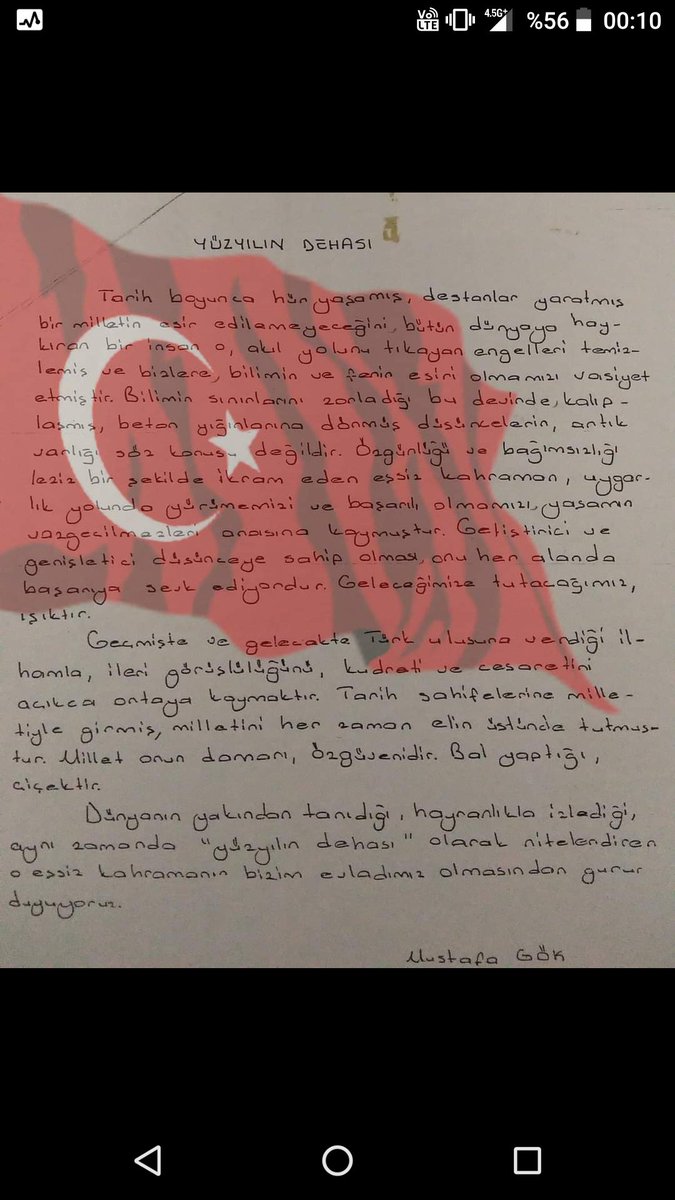 VoLTE 4.5G+ %56 00:10
YÜZYILIN DEHASI
Tarih boyunca hür yaşamış, destanlar yaratmış
bir milletin esir edilemeyeceğini, bütün dünyaya hay-
kıran bir insan o, akıl yolunu tıkayan engelleri temiz-
lemiş ve bizlere, bilimin ve fenin esiri olmamızı vasiyet
etmiştir. Bilimin sınırlarını zorladığı bu devirde, kalıp-
laşmış, beton yığınlarına dönmüş düşüncelerin, artık
varlığı söz konusu değildir. Özgünlüğü ve bağımsızlığı
leziz bir şekilde ikram eden eşsiz kahraman, uygar-
lık yolunda yürümemizi ve başarılı olmamızı, yaşamın
vazgeçilmezleri arasına koymuştur. Geliştirici ve
genişletici düşünceye sahip olması, onu her alanda
başarıya sevk ediyordur. Geleceğimize tutacağımız,
ışıktır.
Geçmişte ve gelecekte Türk ulusuna verdiği il-
hamla, ileri görüşlülüğünü, kudreti ve cesaretini
açıkca ortaya koymaktır. Tarih sahifelerine mille-
tiyle girmiş, milletini her zaman elin üstünde tutmuş-
tur. Millet onun damarı, özgüvenidir. Bal yaptığı,
çiçektir.
Dünyanın yakından tanıdığı, hayranlıkla izlediği,
aynı zamanda "yüzyılın dehası" olarak nitelendiren
o eşsiz kahramanın bizim evladımız olmasından gurur
duyuyoruz.
Mustafa GÖK